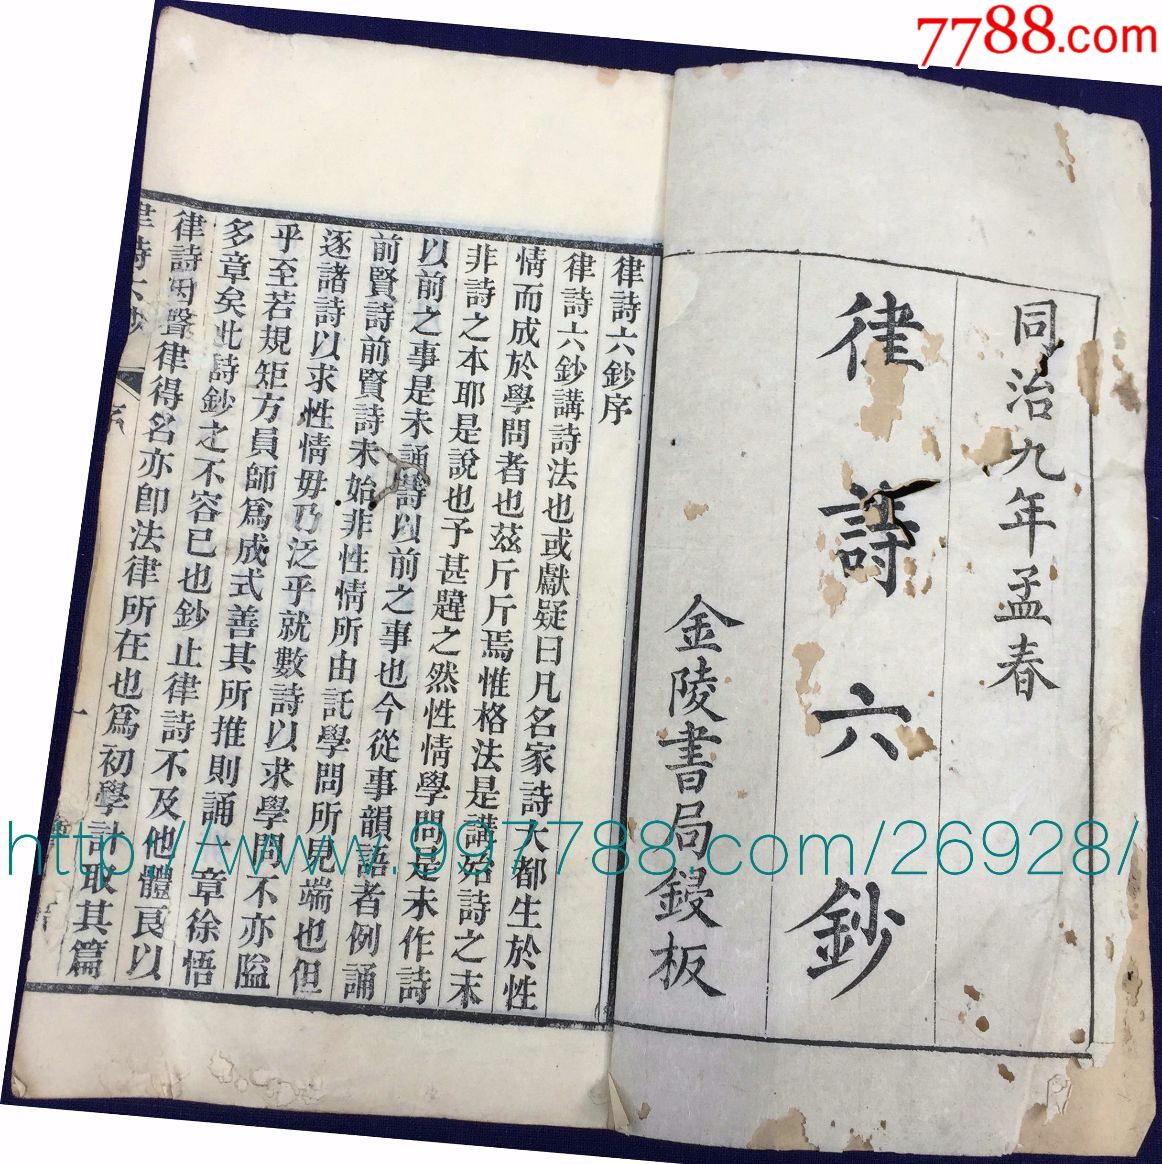 7788.com
同治九年孟春
律詩六鈔
金陵書局鋟板
律詩六鈔序
律詩六鈔講詩法也或獻疑曰凡名家詩大都生於性
情而成於學問者也茲斤斤焉惟格法是講始詩之末
非詩之本耶是說也予甚韙之然性情學問是未作詩
以前之事是未誦詩以前之事也今從事韻語者例誦
前賢詩前賢詩未始非性情所由託學問所見端也但
逐諸詩以求性情毋乃泛乎就數詩以求學問不亦隘
乎至若規矩方員師爲成式善其所推則誦一章徐悟
多章矣此詩鈔之不容已也鈔止律詩不及他體良以
律詩因聲律得名亦卽法律所在也爲初學計取其篇
律詩六鈔
序
一
http://www.997788.com/26928/